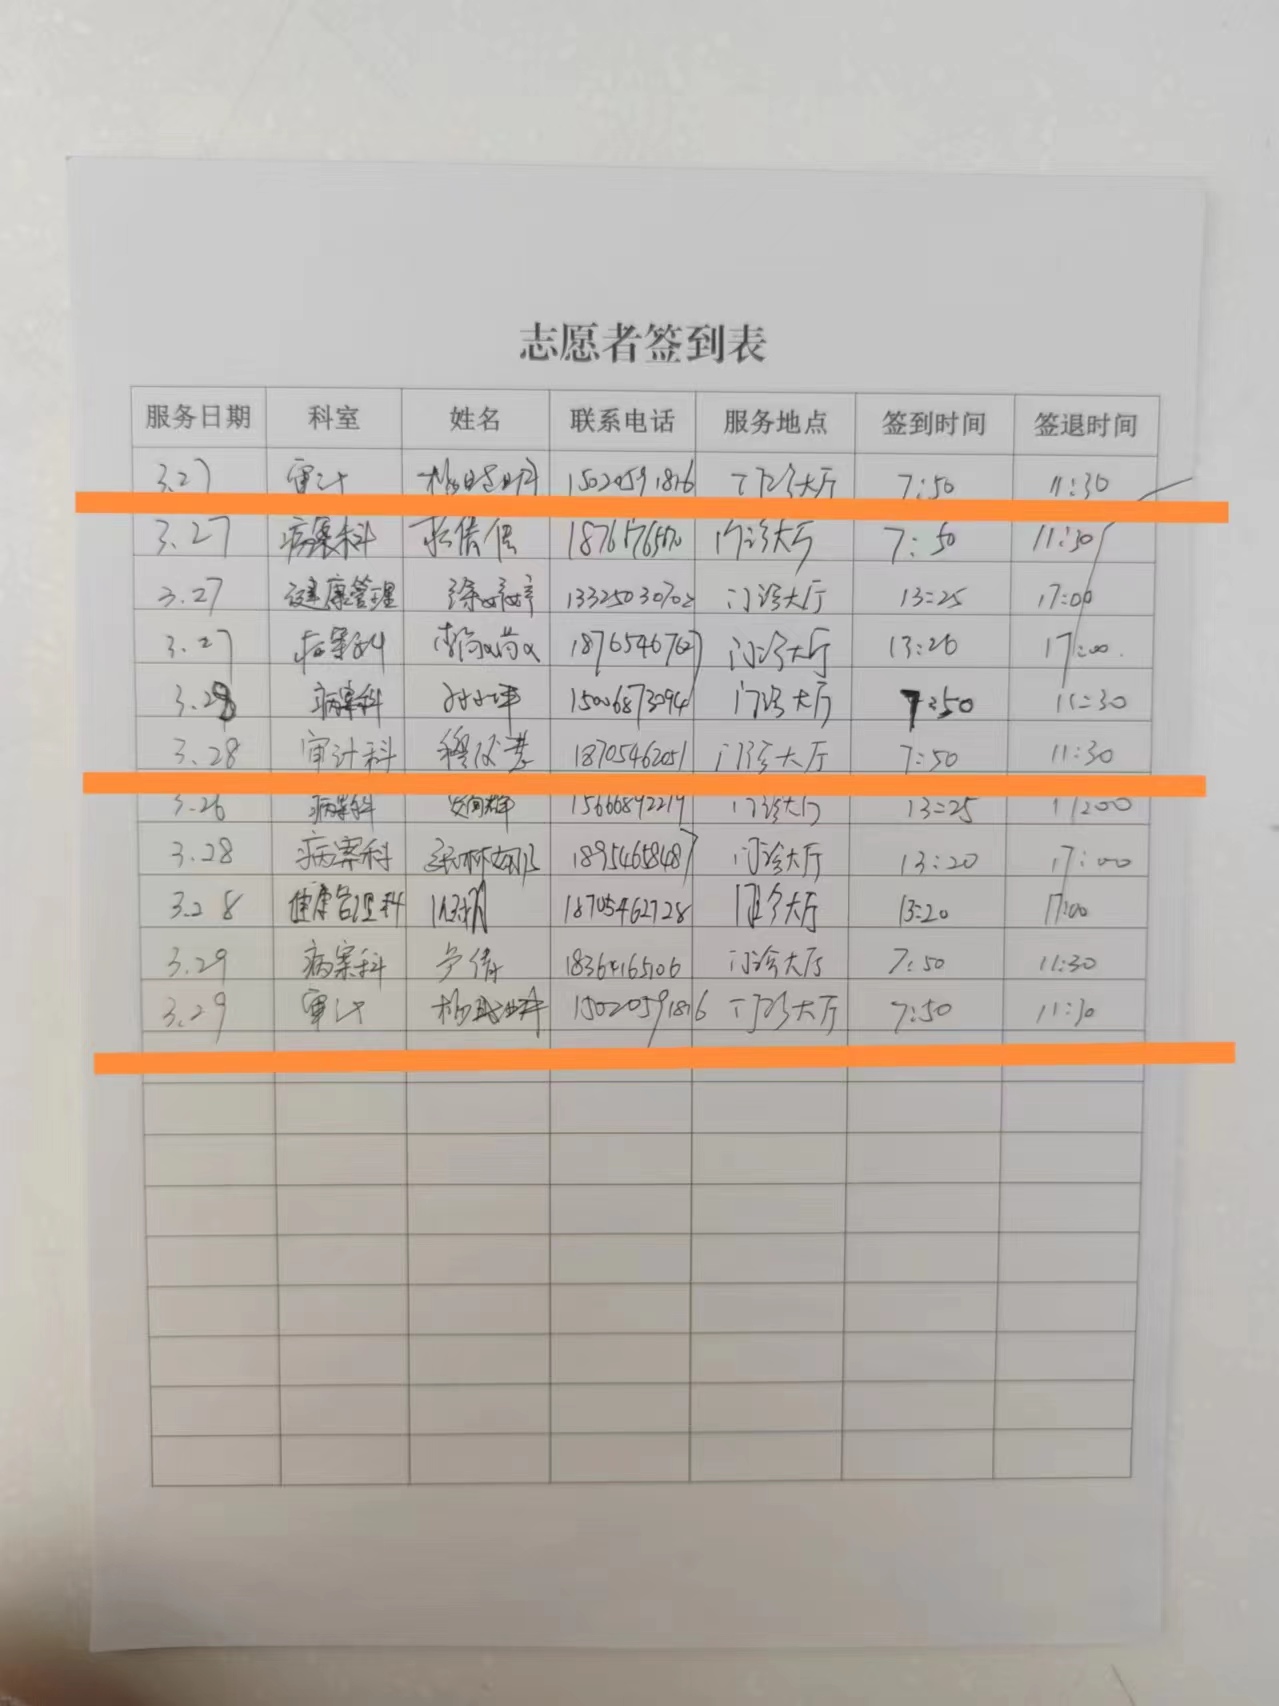 志愿者签到表
服务日期 科室 姓名 联系电话 服务地点 签到时间 签退时间
3.27 审计 15020591816 门诊大厅 7:50 11:30
3.27 病案科 门诊大厅 7:50 11:30
3.27 健康管理 徐婷婷 13325030702 门诊大厅 13:25 17:00
3.27 病案科 18765467627 门诊大厅 13:20 17:00.
3.28 病案科 15006873094 门诊大厅 7:50 11:30
3.28 审计科 18705462051 门诊大厅 7:50 11:30
病案科 15666892219 门诊大厅 13:25 17:00
3.28 病案科 18954658487 门诊大厅 13:20 17:00
3.28 健康管理科 18705462728 门诊大厅 13:20 17:00
3.29 病案科 卢倩 门诊大厅 7:50 11:30
3.29 审计 15020591816 门诊大厅 7:50 11:30